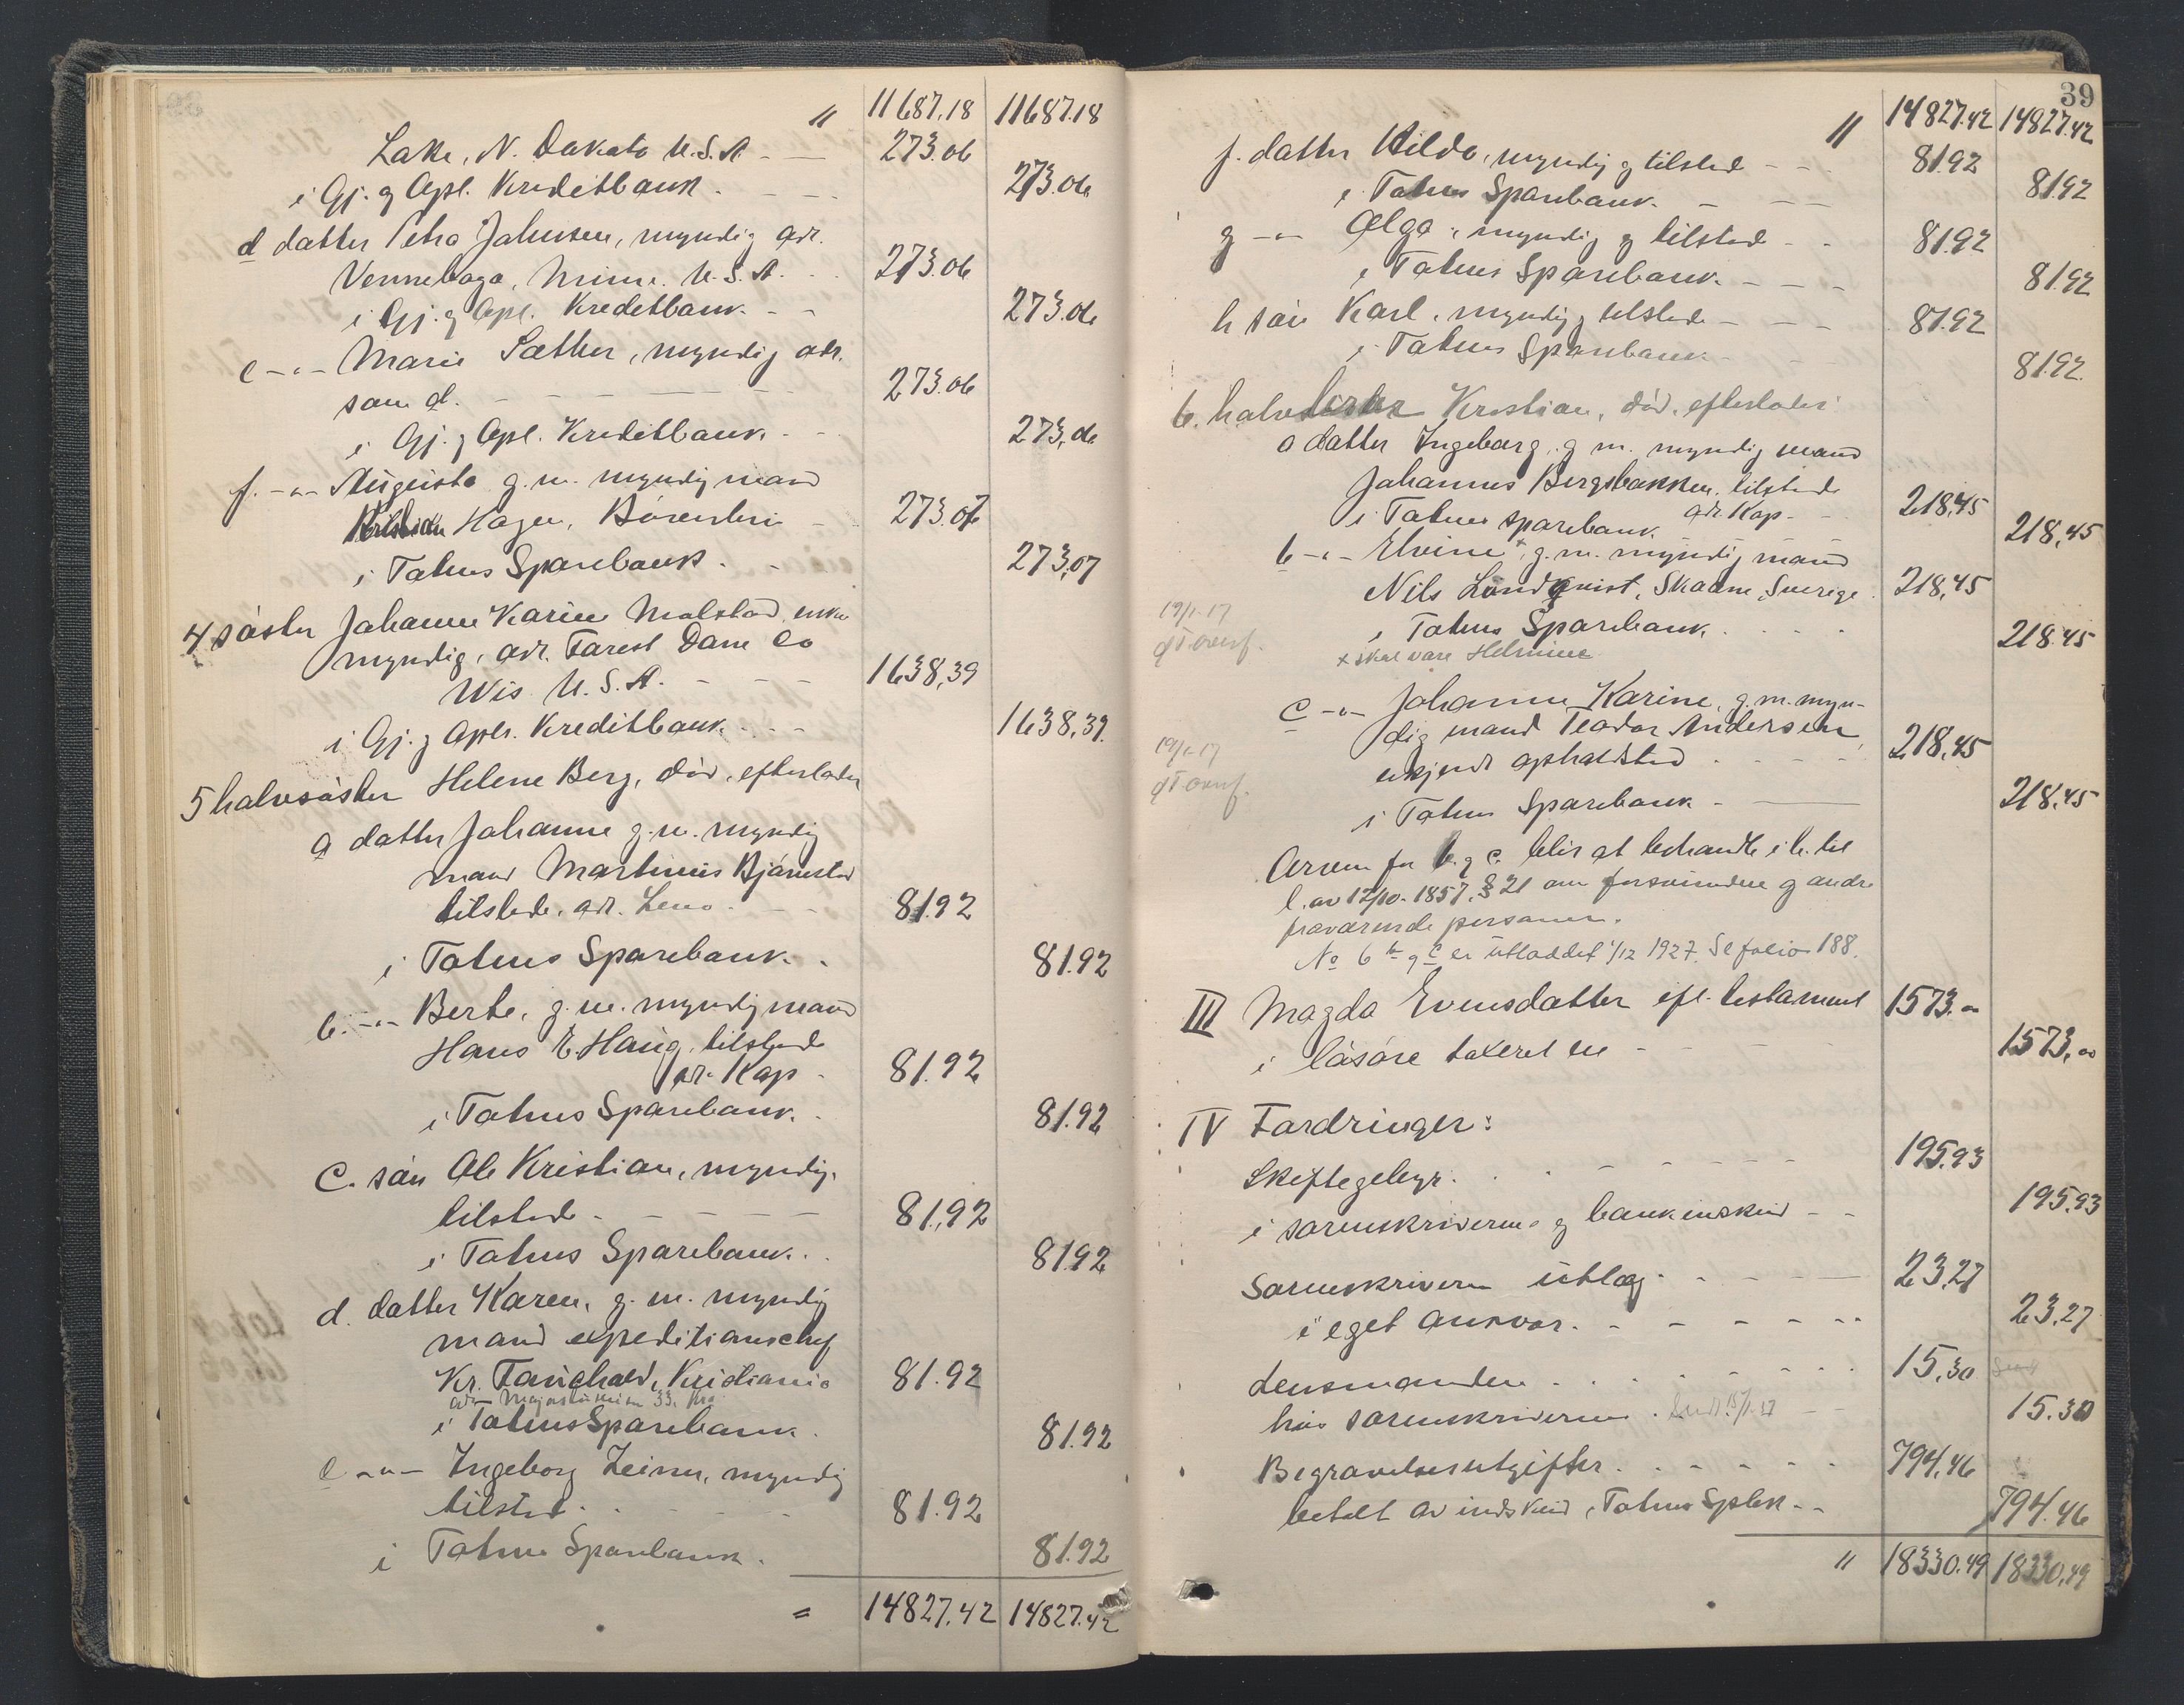 " 11687.18 11687.18
Lake, N. Dakota U.S.A. - 273.06
i Gj. og Opl. Kreditbank. - 273.06
d datter Petra Johnsen, myndig adr.
Vennebaga, Minn. U.S.A. 273.06
i Gj. og Opl. Kreditbank. - 273.06
e -"- Marie Sæther, myndig adr.
som d. - 273.06
i Gj. og Opl. Kreditbank. 273,06
f. -"- Augusta g.m. myndig mand
Kristian Hagen, - 273.07
i Totens Sparebank. - 273,07
4 søster Johanne Karine Molstad, enke
myndig, adr. Forest Dane Co
Wis. U.S.A. - 1638,39
i Gj. og Opl. Kreditbank. 1638,39
5 halvsøster Helene Berg, død, efterlater
a datter Johanne g.m. myndig
mand Martinius Bjørnstad
tilstede, adr. Lena 81.92
i Totens Sparebank. 81.92
b. -"- Berte, g.m. myndig mand
Hans E. Haug, tilstede
adr. Kap - 81.92
i Totens Sparebank. 81.92
c. søn Ole Kristian, myndig,
tilstede - 81,92
i Totens Sparebank. 81.92
d. datter Karen, g.m. myndig
mand expeditionschef
Kr. Fauchald, Kristiania 81.92
adr. 33,
i Totens Sparebank. 81.92
e -"- Ingeborg Leinee, myndig
tilsted. 81.92
i Totens Sparebank. 81.92
= 14827,42 14827.42
39
" 14827.42 14827.42
f. datter Hilda, myndig og tilsted - 81.92
i Totens Sparebank. - 81.92
g -"- Olga, myndig og tilsted - 81.92
i Totens Sparebank. - 81.92
h søn Karl, myndig og tilstede - 81.92
i Totens Sparebank. - 81.92
6. halvbror Kristian, død, efterlater
a datter Ingeborg, g.m. myndig mand
Johannes Bergsbakken, tilstede
adr. Kap. - 218,45
i Totens Sparebank 218,45
b -"- Elvine x, g.m. myndig mand
Nils Lundqvist, Skaane, Sverige. 218,45
19/1-17
i Totens Sparebank. 218.45
x skal være Helmine
c -"- Johanne Karine, g.m. myn-
dig mand Teodor Andersen,
19/1-17
ukjendt opholdsted 218,45
i Totens Sparebank - 218.45
Arven for b. og c. blir at behandle i h. til
l. av 12/10-1857, § 21 om forsvundne og andre
fraværende personer.
No 6 b og c er utloddet 1/12 1927. Se folio 188.
III Magda Evensdatter efl. testament 1573.-
i løsøre taxeret til - 1573,00
IV Fordringer:
Skiftegebyr. 195.93
i sorenskriverens og bankinskud - 195.93
Sorenskriveren utlæg. 23,27
i eget ansvar. - 23,27
Lensmanden 15,30
hos sorenskriveren. Sendt 15/1-17 15.30
Begravelsesutgifter. 794,46
betalt av indskud i Totens Spbk. - 794.46
" 18330.49 18330,49